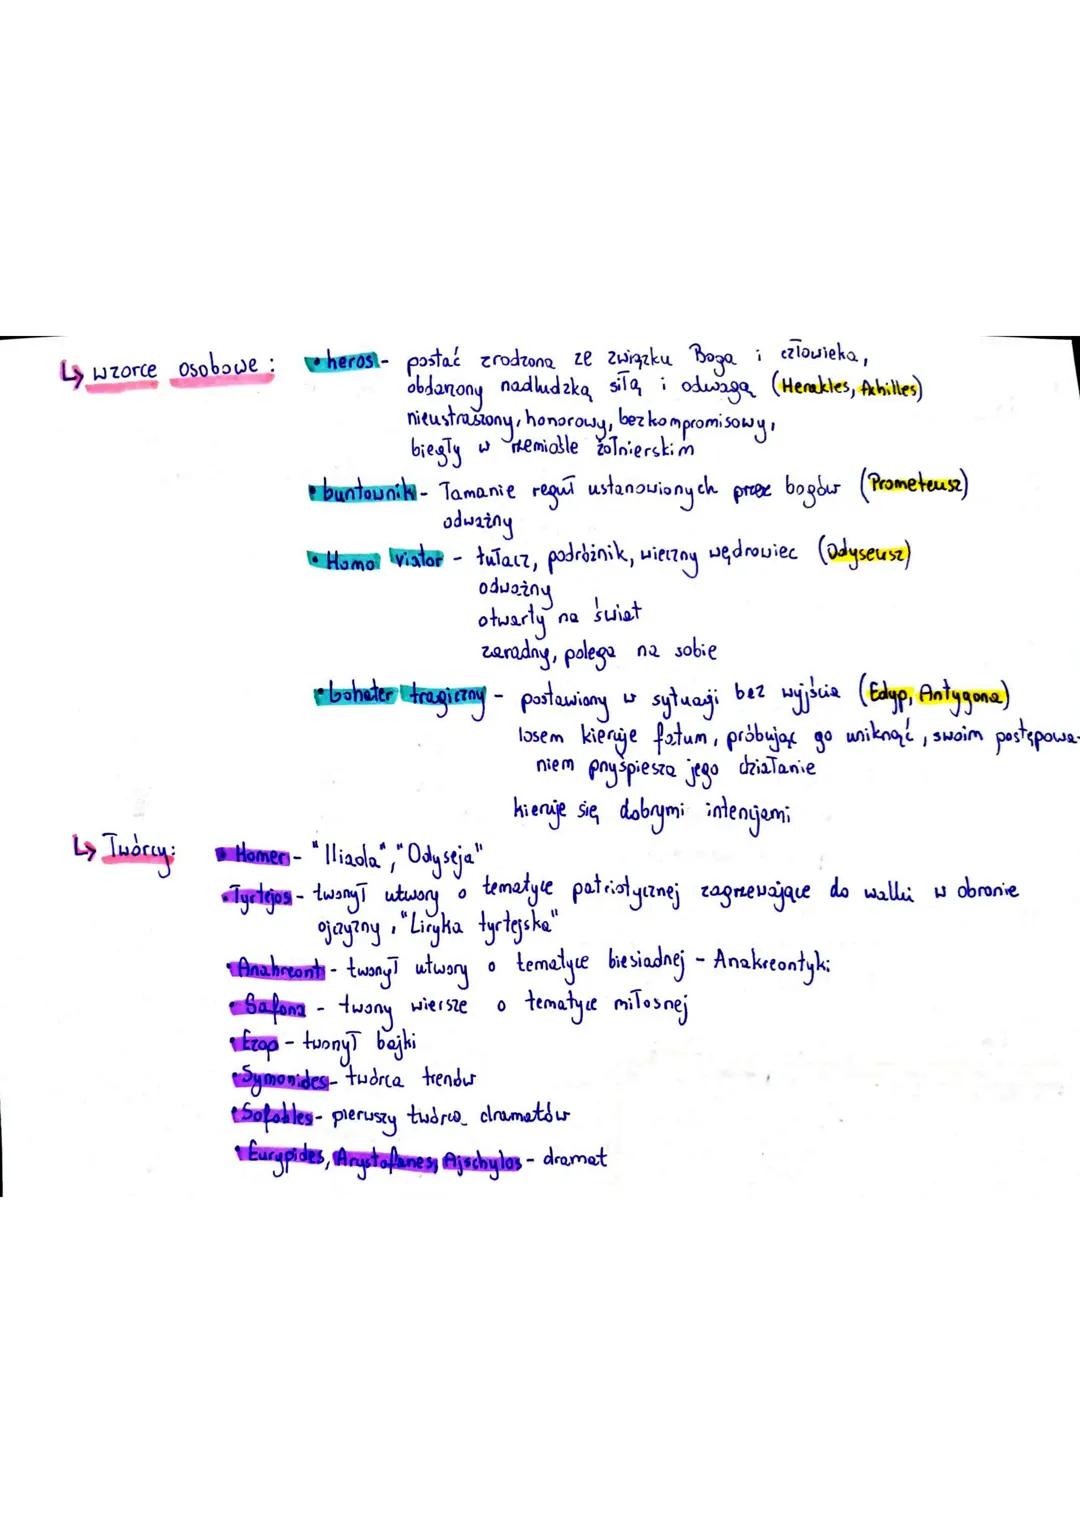 ↳ wzorce osobowe: • heros - postać zrodzona ze związku Boga i człowieka,
obdarzony nadludzką siłą i odwagą (Herakles, Achilles)
nieustraszony, honorowy, bezkompromisowy,
biegły w rzemiośle żołnierskim
• buntownik - łamanie reguł ustanowionych przez bogów (Prometeusz)
odważny
• Homo viator - tułacz, podróżnik, wieczny wędrowiec (Odyseusz)
odważny
otwarty na świat
zaradny, polega na sobie
• bohater tragiczny - postawiony w sytuacji bez wyjścia (Edyp, Antygona)
losem kieruje fatum, próbując go uniknąć, swoim postępowa-
niem przyśpiesza jego działanie
kieruje się dobrymi intencjami
↳ Twórcy: • Homer - "Iliada", "Odyseja"
• Tyrtejos - tworzył utwory o tematyce patriotycznej zagrzewające do walki w obronie
ojczyzny, "Liryka tyrtejska"
• Anakreont - tworzył utwory o tematyce biesiadnej - Anakreontyki
• Safona - tworzy wiersze o tematyce miłosnej
• Ezop - tworzył bajki
• Symonides - twórca trenów
• Sofokles - pierwszy twórca dramatów
• Eurypides, Arystofanes, Ajschylos - dramat